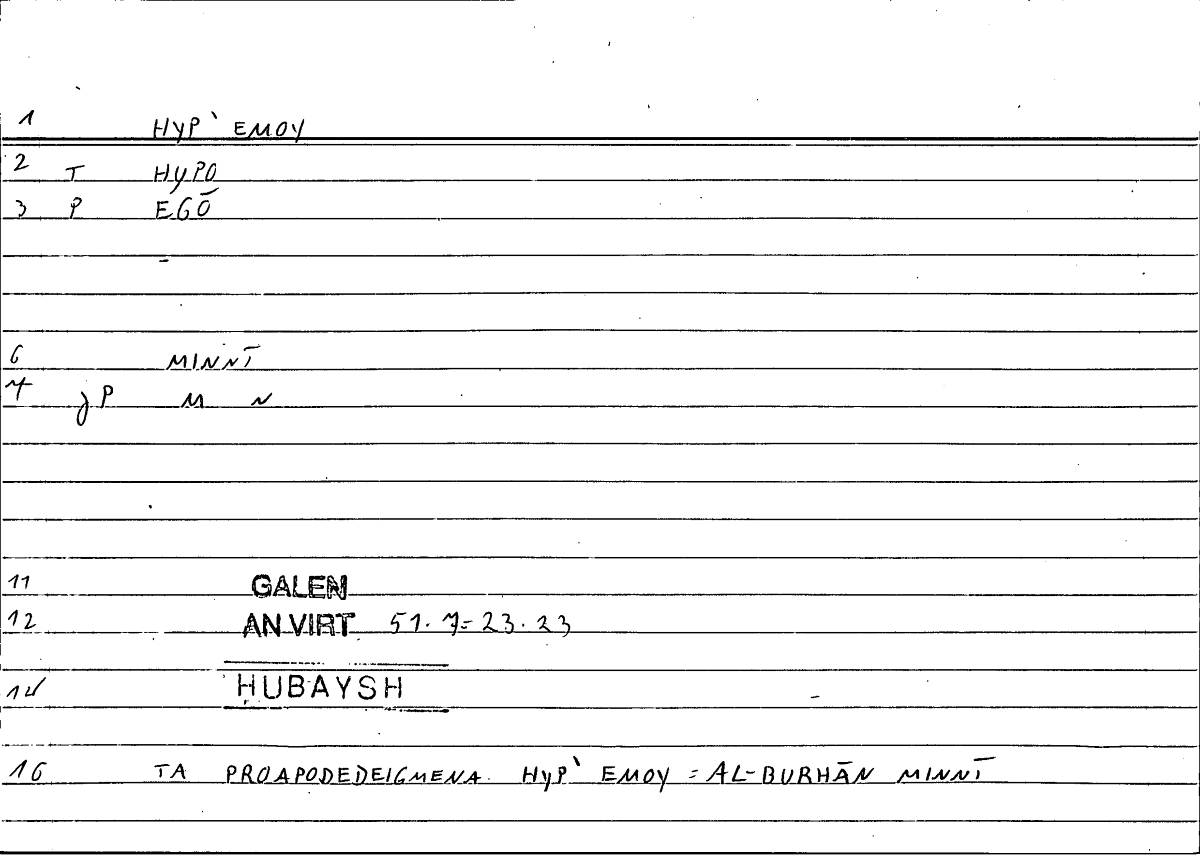 1 HYP` EMOY
2 T HYPO
3 P EGŌ
6 MINNĪ
7 JP M N
11 GALEN
12 AN VIRT 51.7=23.23
14 HUBAYSH
16 TA PROAPODEDEIGMENA HYP` EMOY = AL-BURHĀN MINNĪ